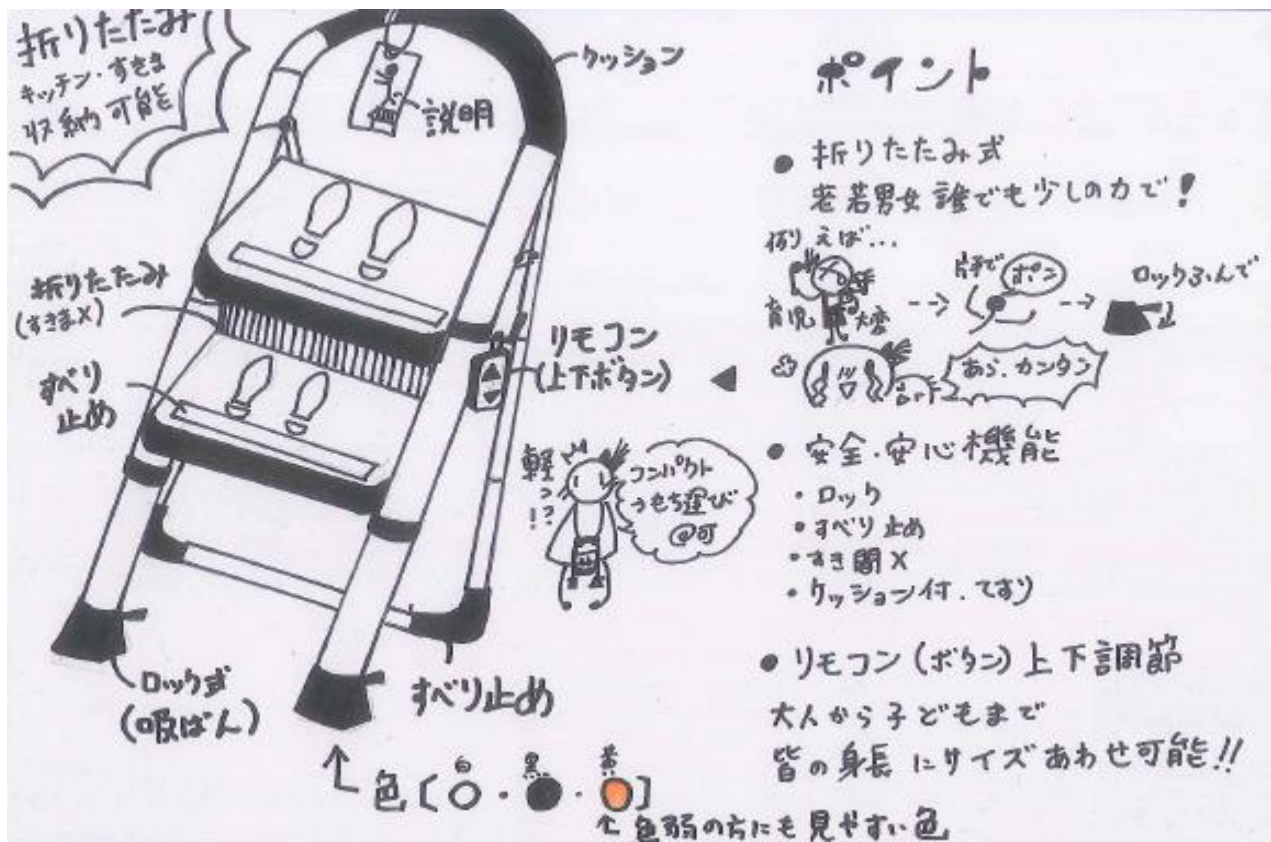 折りたたみ
キッチン・すきま
収納可能
クッション
説明
折りたたみ
(すきまX)
すべり
止め
リモコン
(上下ボタン)
軽っ!?
コンパクト
うもち運び
@可
ロック式
(吸ばん)
すべり止め
色〔白・黒・黄〕
色弱の方にも見やすい色
ポイント
● 折りたたみ式
老若男女誰でも少しの力で!
例えば...
育児
大変
片手で
ポン
ロックふんで
あら、カンタン
● 安全・安心機能
・ロック
・すべり止め
・すき間X
・クッション付、てすり
● リモコン(ボタン)上下調節
大人から子どもまで
皆の身長にサイズあわせ可能!!